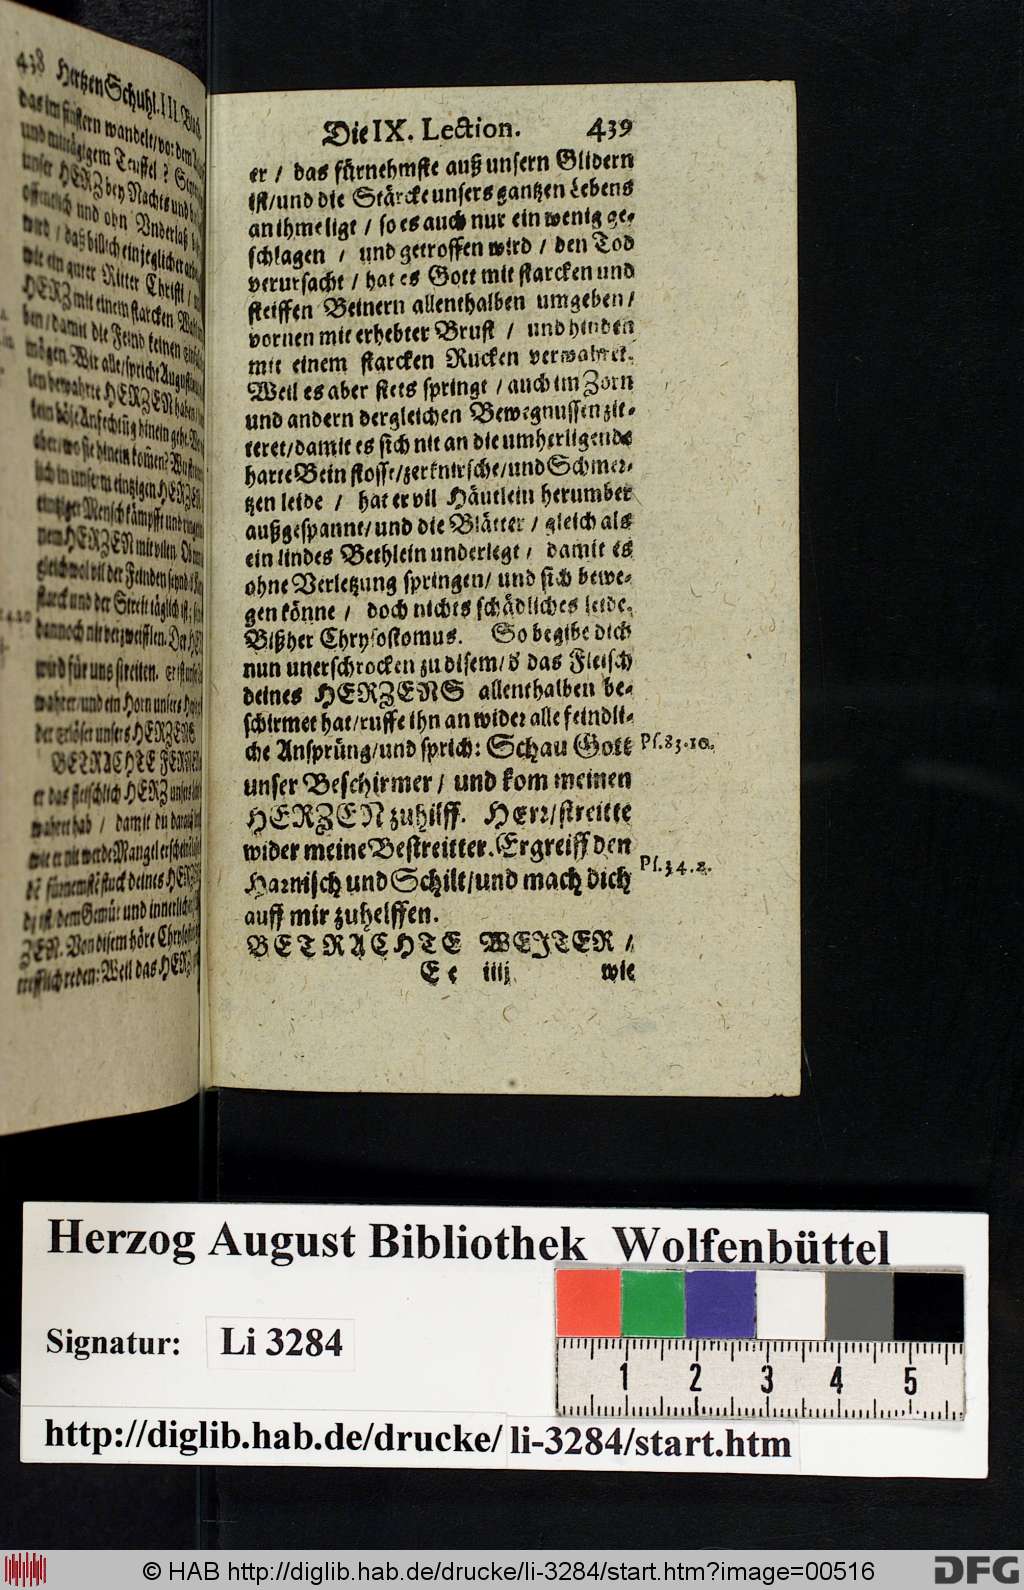 438 Hertzen Schuhl. III. Buch
das im finstern wandelt/vor dem
und mittägigem Teuffel?
unser HERZ bey Nachts und
offentlich und ohn Vnderlaß
wird/daß billich ein jeglicher
wie ein guter Ritter Christi/
HERZ mit einem starcken
ben/damit die Feind keinen
mögen. Wir alle/spricht Augustinus
len bewahrte HERZEN haben
kein böse Anfechtũg hinein gehe.
aber/wo sie hinein kom̃en?
lich in unserm eintzigen HERZEN
eintziger Mensch kämpfft und
nem HERZEN mit vilen.
gleichwol vil der Feinden seynd
starck und der Streit täglich ist/
dannoch nit verzweifflen. Der
wird für uns streiten.
wahrer/und ein Horn unsers
der Erlöser unsers HERZENS
BETRACHTE FERNER
er das fleischlich HERZ
wahret hab/damit du darauß
wie er nit werde Mangel
dẽ fürnemstẽ stuck deines
dz ist dem Gemüt und
ZEN. Von disem höre
trefflich reden: Weil das HERZ
Die IX. Lection. 439
er/das fürnehmste auß unsern Glidern
ist/und die Stärcke unsers gantzen Lebens
an ihme ligt/so es auch nur ein wenig ge-
schlagen/und getroffen wird/den Tod
verursacht/hat es Gott mit starcken und
steiffen Beinern allenthalben umgeben/
vornen mit erhebter Brust/und hinden
mit einem starcken Rucken verwahret.
Weil es aber stets springt/auch im Zorn
und andern dergleichen Bewegnussen zit-
teret/damit es sich nit an die umherligende
harte Bein stosse/zerknirsche/und Schmer-
tzen leide/hat er vil Häutlein herumber
außgespannt/und die Blätter/gleich als
ein lindes Bethlein underlegt/damit es
ohne Verletzung springen/und sich bewe-
gen könne/doch nichts schädliches leide.
Bißher Chrysostomus. So begibe dich
nun unerschrocken zu disem/d' das Fleisch
deines HERZENS allenthalben be-
schirmet hat/ruffe ihn an wider alle feindli-
che Ansprüng/und sprich: Schau Gott
unser Beschirmer/und kom meinen
HERZEN zuhilff. Herr/streitte
wider meine Bestreitter. Ergreiff den
Harnisch und Schilt/und mach dich
auff mir zuhelffen.
BETRACHTE WEITER/
Ee iiij wie
Ps. 83. 10.
Ps. 34. 2.
Herzog August Bibliothek Wolfenbüttel
Signatur: Li 3284
1 2 3 4 5
http://diglib.hab.de/drucke/li-3284/start.htm
© HAB http://diglib.hab.de/drucke/li-3284/start.htm?image=00516
DFG